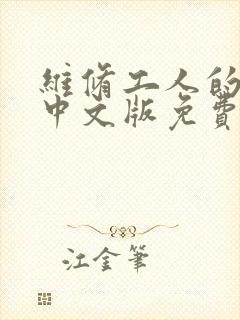 維脩工人的
中文版免費
江金筆